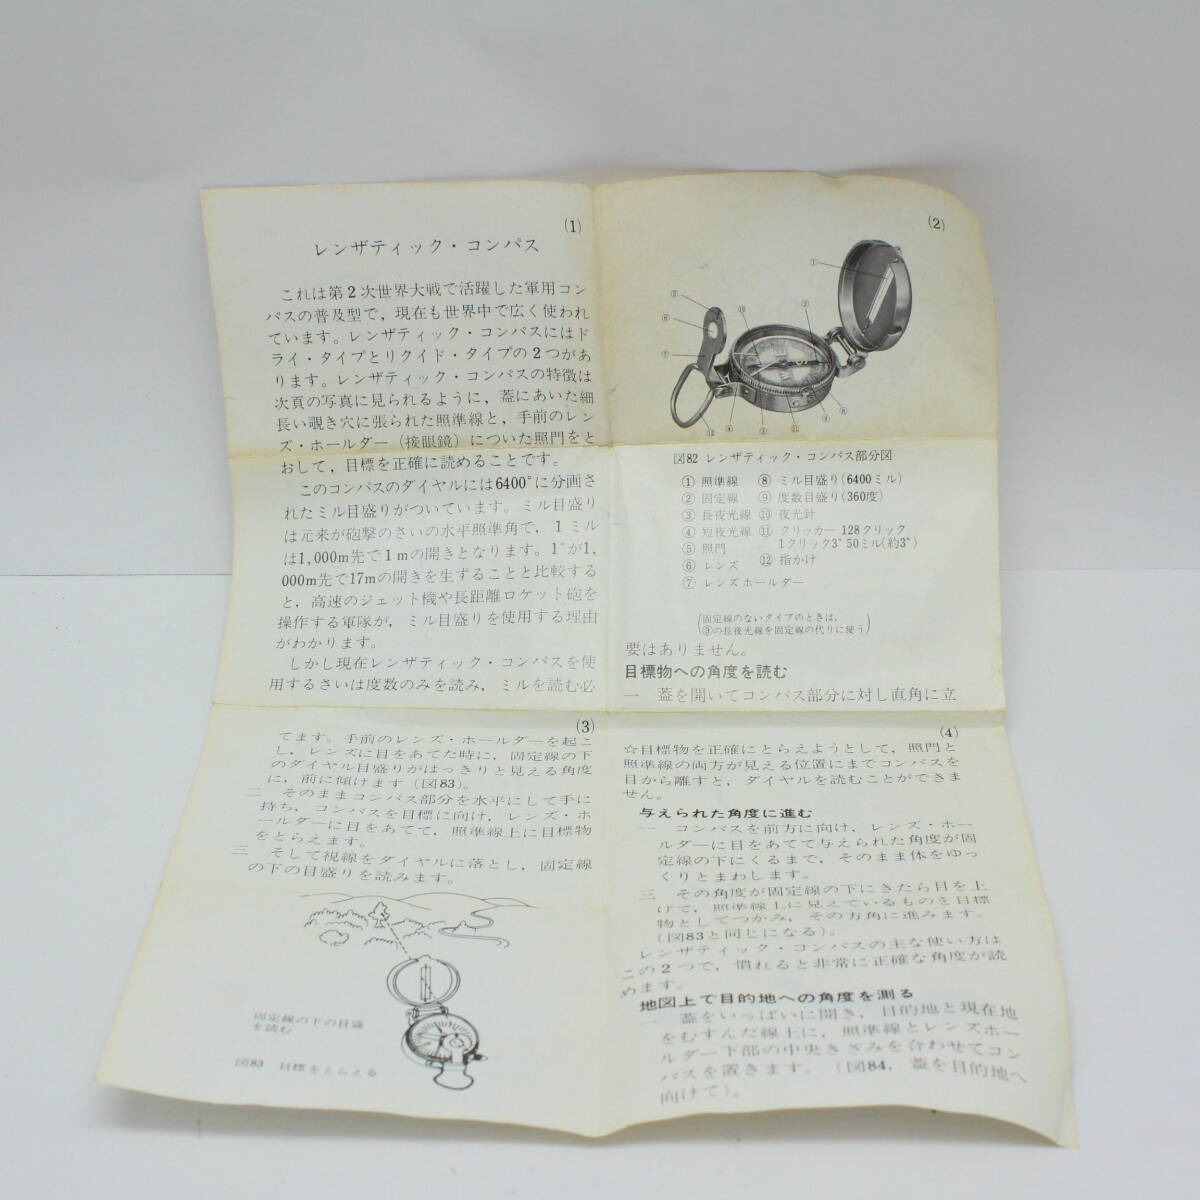 (1)
レンザティック・コンパス
これは第2次世界大戦で活躍した軍用コン
パスの普及型で，現在も世界中で広く使われ
ています。レンザティック・コンパスにはド
ライ・タイプとリクイド・タイプの2つがあ
ります。レンザティック・コンパスの特徴は
次頁の写真に見られるように，蓋にあいた細
長い覗き穴に張られた照準線と，手前のレン
ズ・ホールダー（接眼鏡）についた照門をと
おして，目標を正確に読めることです。
このコンパスのダイヤルには6400°に分画さ
れたミル目盛りがついています。ミル目盛り
は元来が砲撃のさいの水平照準角で，1ミル
は1,000m先で1mの開きとなります。1°が1,
000m先で17mの開きを生ずることと比較する
と，高速のジェット機や長距離ロケット砲を
操作する軍隊が，ミル目盛りを使用する理由
がわかります。
しかし現在レンザティック・コンパスを使
用するさいは度数のみを読み，ミルを読む必
(2)
①
②
⑤
⑥
⑩
⑦
⑫
④
③
⑪
⑨
⑧
図82 レンザティック・コンパス部分図
① 照準線 ⑧ ミル目盛り(6400ミル)
② 固定線 ⑨ 度数目盛り(360度)
③ 長夜光線 ⑩ 夜光針
④ 短夜光線 ⑪ クリッカー 128クリック
⑤ 照門 1クリック3° 50ミル(約3°)
⑥ レンズ ⑫ 指かけ
⑦ レンズホールダー
(固定線のないタイプのときは，
③の長夜光線を固定線の代りに使う)
要はありません。
目標物への角度を読む
一 蓋を開いてコンパス部分に対し直角に立
(3)
てます。手前のレンズ・ホールダーを起こ
し，レンズに目をあてた時に，固定線の下
のダイヤル目盛りがはっきりと見える角度
に，前に傾けます（図83）。
二 そのままコンパス部分を水平にして手に
持ち，コンパスを目標に向け，レンズ・ホ
ールダーに目をあてて，照準線上に目標物
をとらえます。
三 そして視線をダイヤルに落とし，固定線
の下の目盛りを読みます。
固定線の下の目盛
を読む
図83 目標をとらえる
(4)
☆目標物を正確にとらえようとして，照門と
照準線の両方が見える位置にまでコンパスを
目から離すと，ダイヤルを読むことができま
せん。
与えられた角度に進む
一 コンパスを前方に向け，レンズ・ホー
ルダーに目をあてて与えられた角度が固
定線の下にくるまで，そのまま体をゆっ
くりとまわします。
三 その角度が固定線の下にきたら目を上
げて，照準線上に見えているものを目標
物としてつかみ，その方角に進みます。
（図83と同じになる）。
レンザティック・コンパスの主な使い方は
この2つで，慣れると非常に正確な角度が読
めます。
地図上で目的地への角度を測る
一 蓋をいっぱいに開き，目的地と現在地
をむすんだ線上に，照準線とレンズホー
ルダー下部の中央きざみを合わせてコン
パスを置きます。（図84，蓋を目的地へ
向けて）。